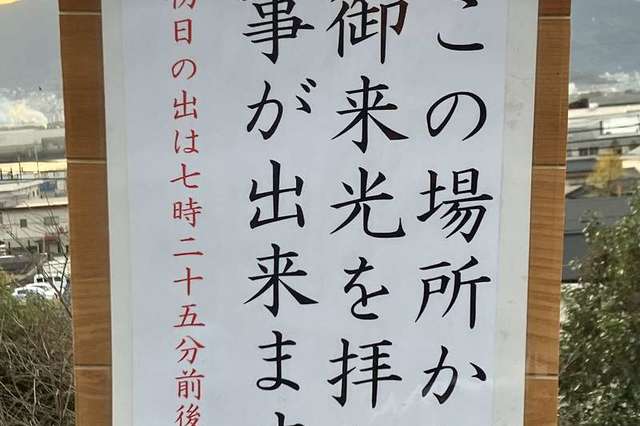 この場所か
御来光を拝
事が出来ま
初日の出は七時二十五分前後